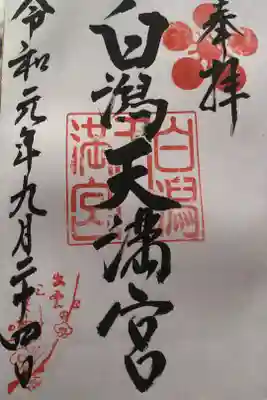 奉拝
白潟天満宮
令和元年九月二十四日
白潟
天
満宮
出雲